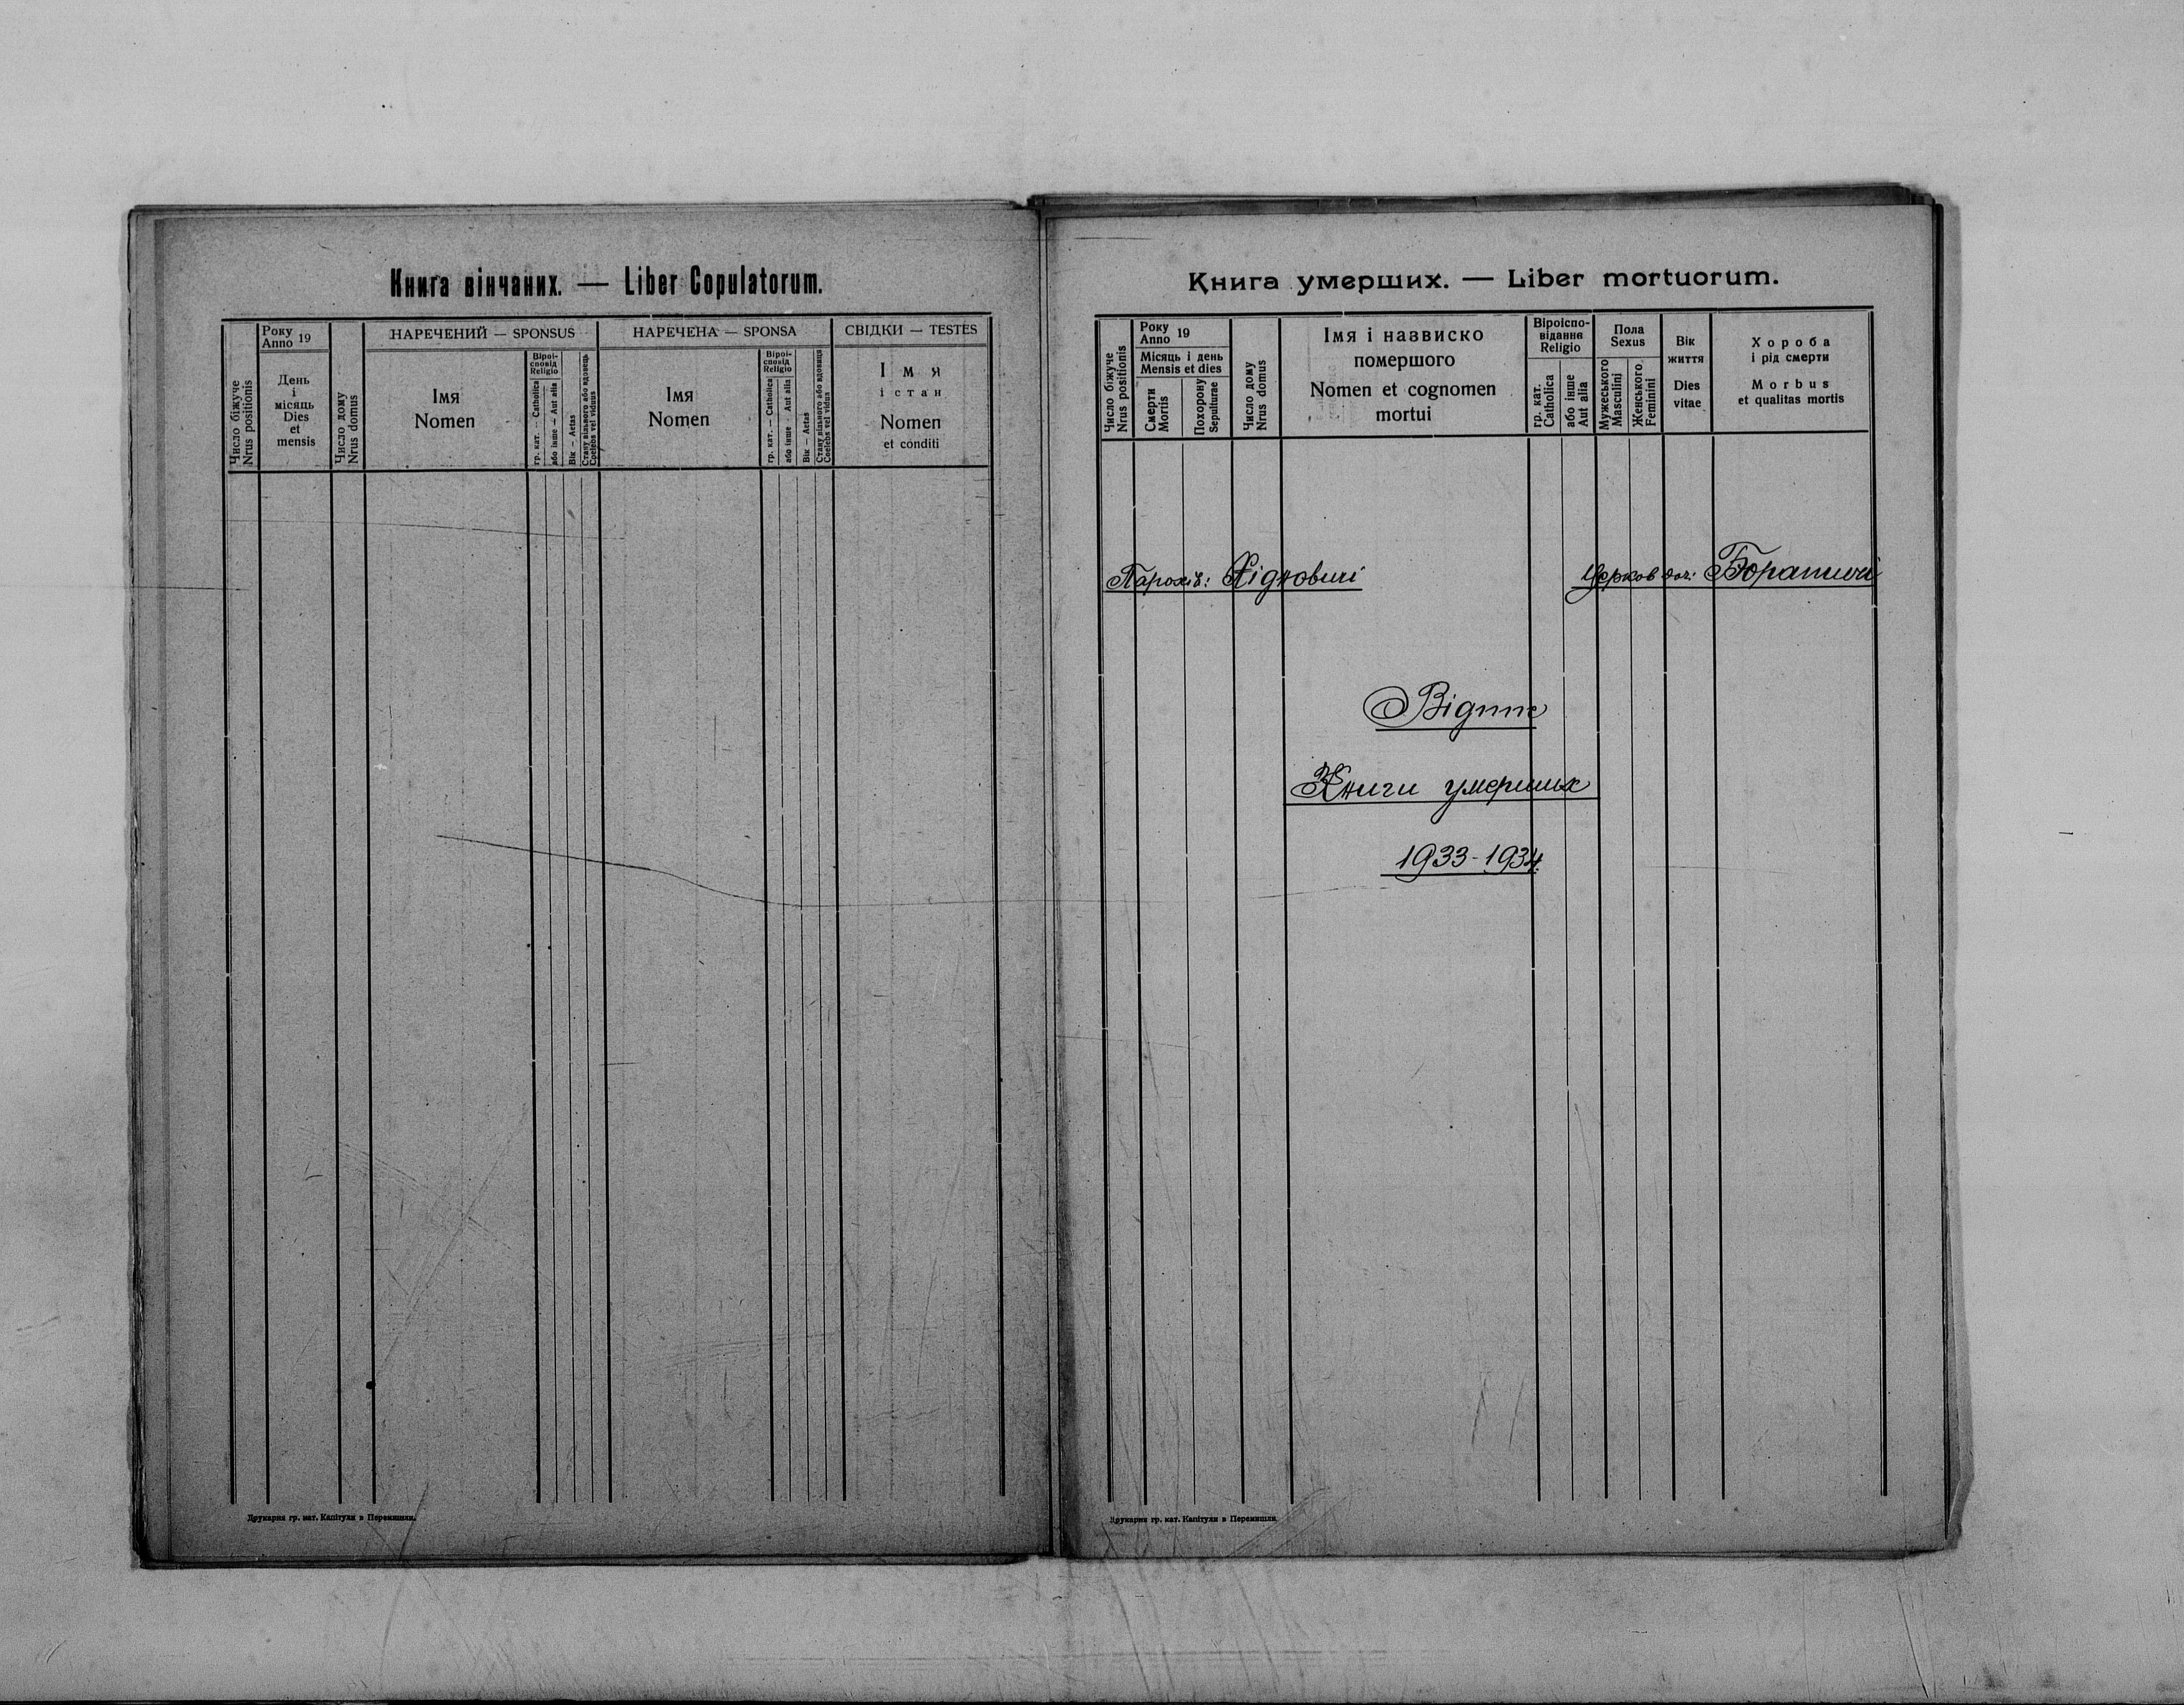 Книга вінчаних. — Liber Copulatorum.
Число біжуче
Nrus positionis
Року
Anno 19
День
і
місяць
Dies
et
mensis
Число дому
Nrus domus
НАРЕЧЕНИЙ — SPONSUS
Імя
Nomen
Віроі-
сповід
Religio
гр. кат. — Catholica
або інше — Aut alia
Вік — Aetas
Стану вільного або вдовець
Coelebs vel viduus
НАРЕЧЕНА — SPONSA
Імя
Nomen
Віроі-
сповід
Religio
гр. кат. — Catholica
або інше — Aut alia
Вік — Aetas
Стану вільного або вдовиця
Coelebs vel vidua
СВІДКИ — TESTES
Імя
і стан
Nomen
et conditi
Друкарня гр. кат. Капітули в Перемишли.
Книга умерших. — Liber mortuorum.
Число біжуче
Nrus positionis
Року
Anno 19
Місяць і день
Mensis et dies
Смерти
Mortis
Похорону
Sepulturae
Число дому
Nrus domus
Імя і назвиско
помершого
Nomen et cognomen
mortui
Віроіспо-
відання
Religio
гр. кат.
Catholica
або інше
Aut alia
Пола
Sexus
Мужеського
Masculini
Женського
Feminini
Вік
життя
Dies
vitae
Хороба
і рід смерти
Morbus
et qualitas mortis
Парохія: Хідновичі
Церков доч: Боратичі
Відпис
Книги умерших
1933-1934.
Друкарня гр. кат. Капітули в Перемишли.